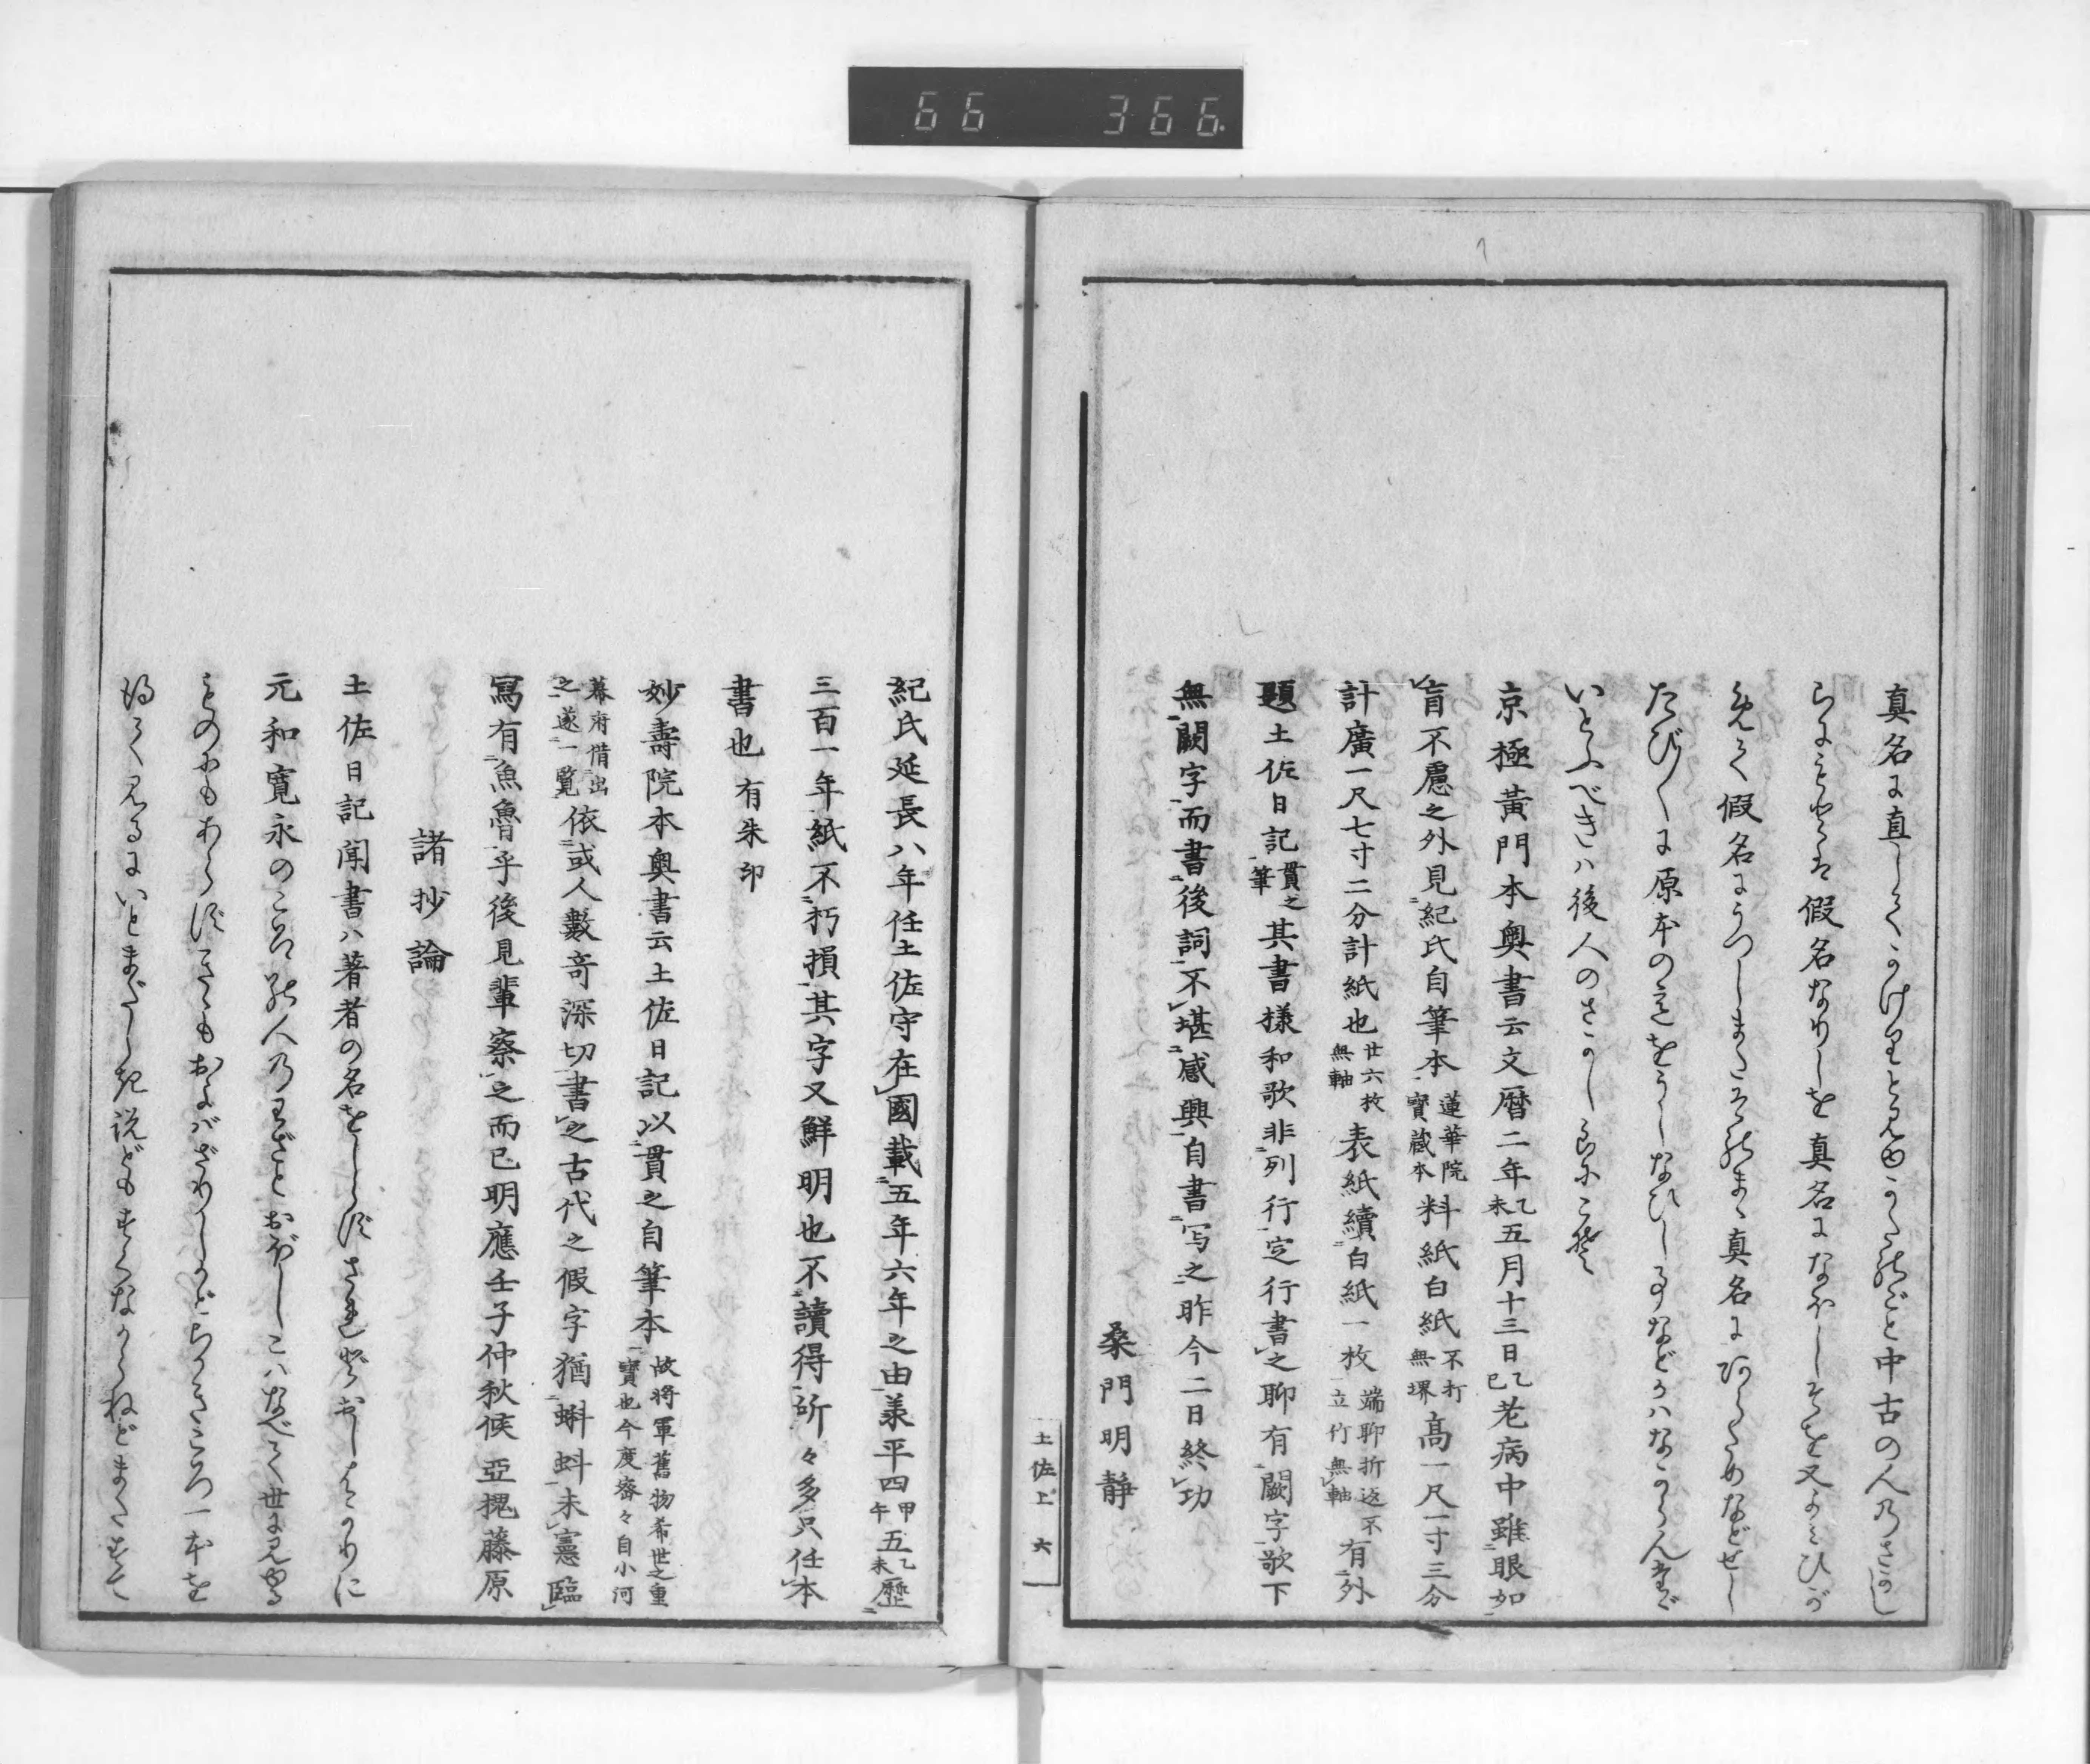 66 366.
真名に直してかけりと見ゆかゝればもと中古の人乃さかし
らにことゝは假名なりしを真名になほしそを又よみひが
めて假名にうつしまたそのまゝ真名にあらためなどせし
たび〳〵に原本の意をうしなひし事などかはなからんたゞ
いとふべきハ後人のさかしらにこそ
京極黃門本奥書云文暦二年乙未五月十三日乙巳老病中雖眼如
盲不慮之外見紀氏自筆本蓮華院寶蔵本料紙白紙不打無堺高一尺一寸三分
計廣一尺七寸二分計紙也廿六枚無軸表紙續白紙一枚端聊折返不立竹無軸有外
題土佐日記貫之筆其書樣和歌非列行定行書之聊有闕字歌下
無闕字而書後詞不堪感興自書写之昨今二日終功
桑門明靜
土佐上 六
紀氏延長八年任土佐守在國載五年六年之由羕平四甲午五乙未歷
三百一年紙不朽損其字又鮮明也不讀得所々多只任本
書也 有朱印
妙壽院本奥書云土佐日記以貫之自筆本故将軍舊物希世之重寶也今度密々自小河
幕府借出之遂一覧依或人數竒深切書之古代之假字猶蝌蚪未憲臨
寫有魚魯乎後見輩察之而已明應壬子仲秋候 亞槐藤原
諸抄論
土佐日記聞書ハ著者の名をしらずされどおしはかりに
元和寛永のころの人乃わざとおぼしこハなべて世に見ゆる
ものにもあらずさゝもおよばざりしかどちかきころ一本を
得て見るにいとまだしき説どもすくなからねどまたすて